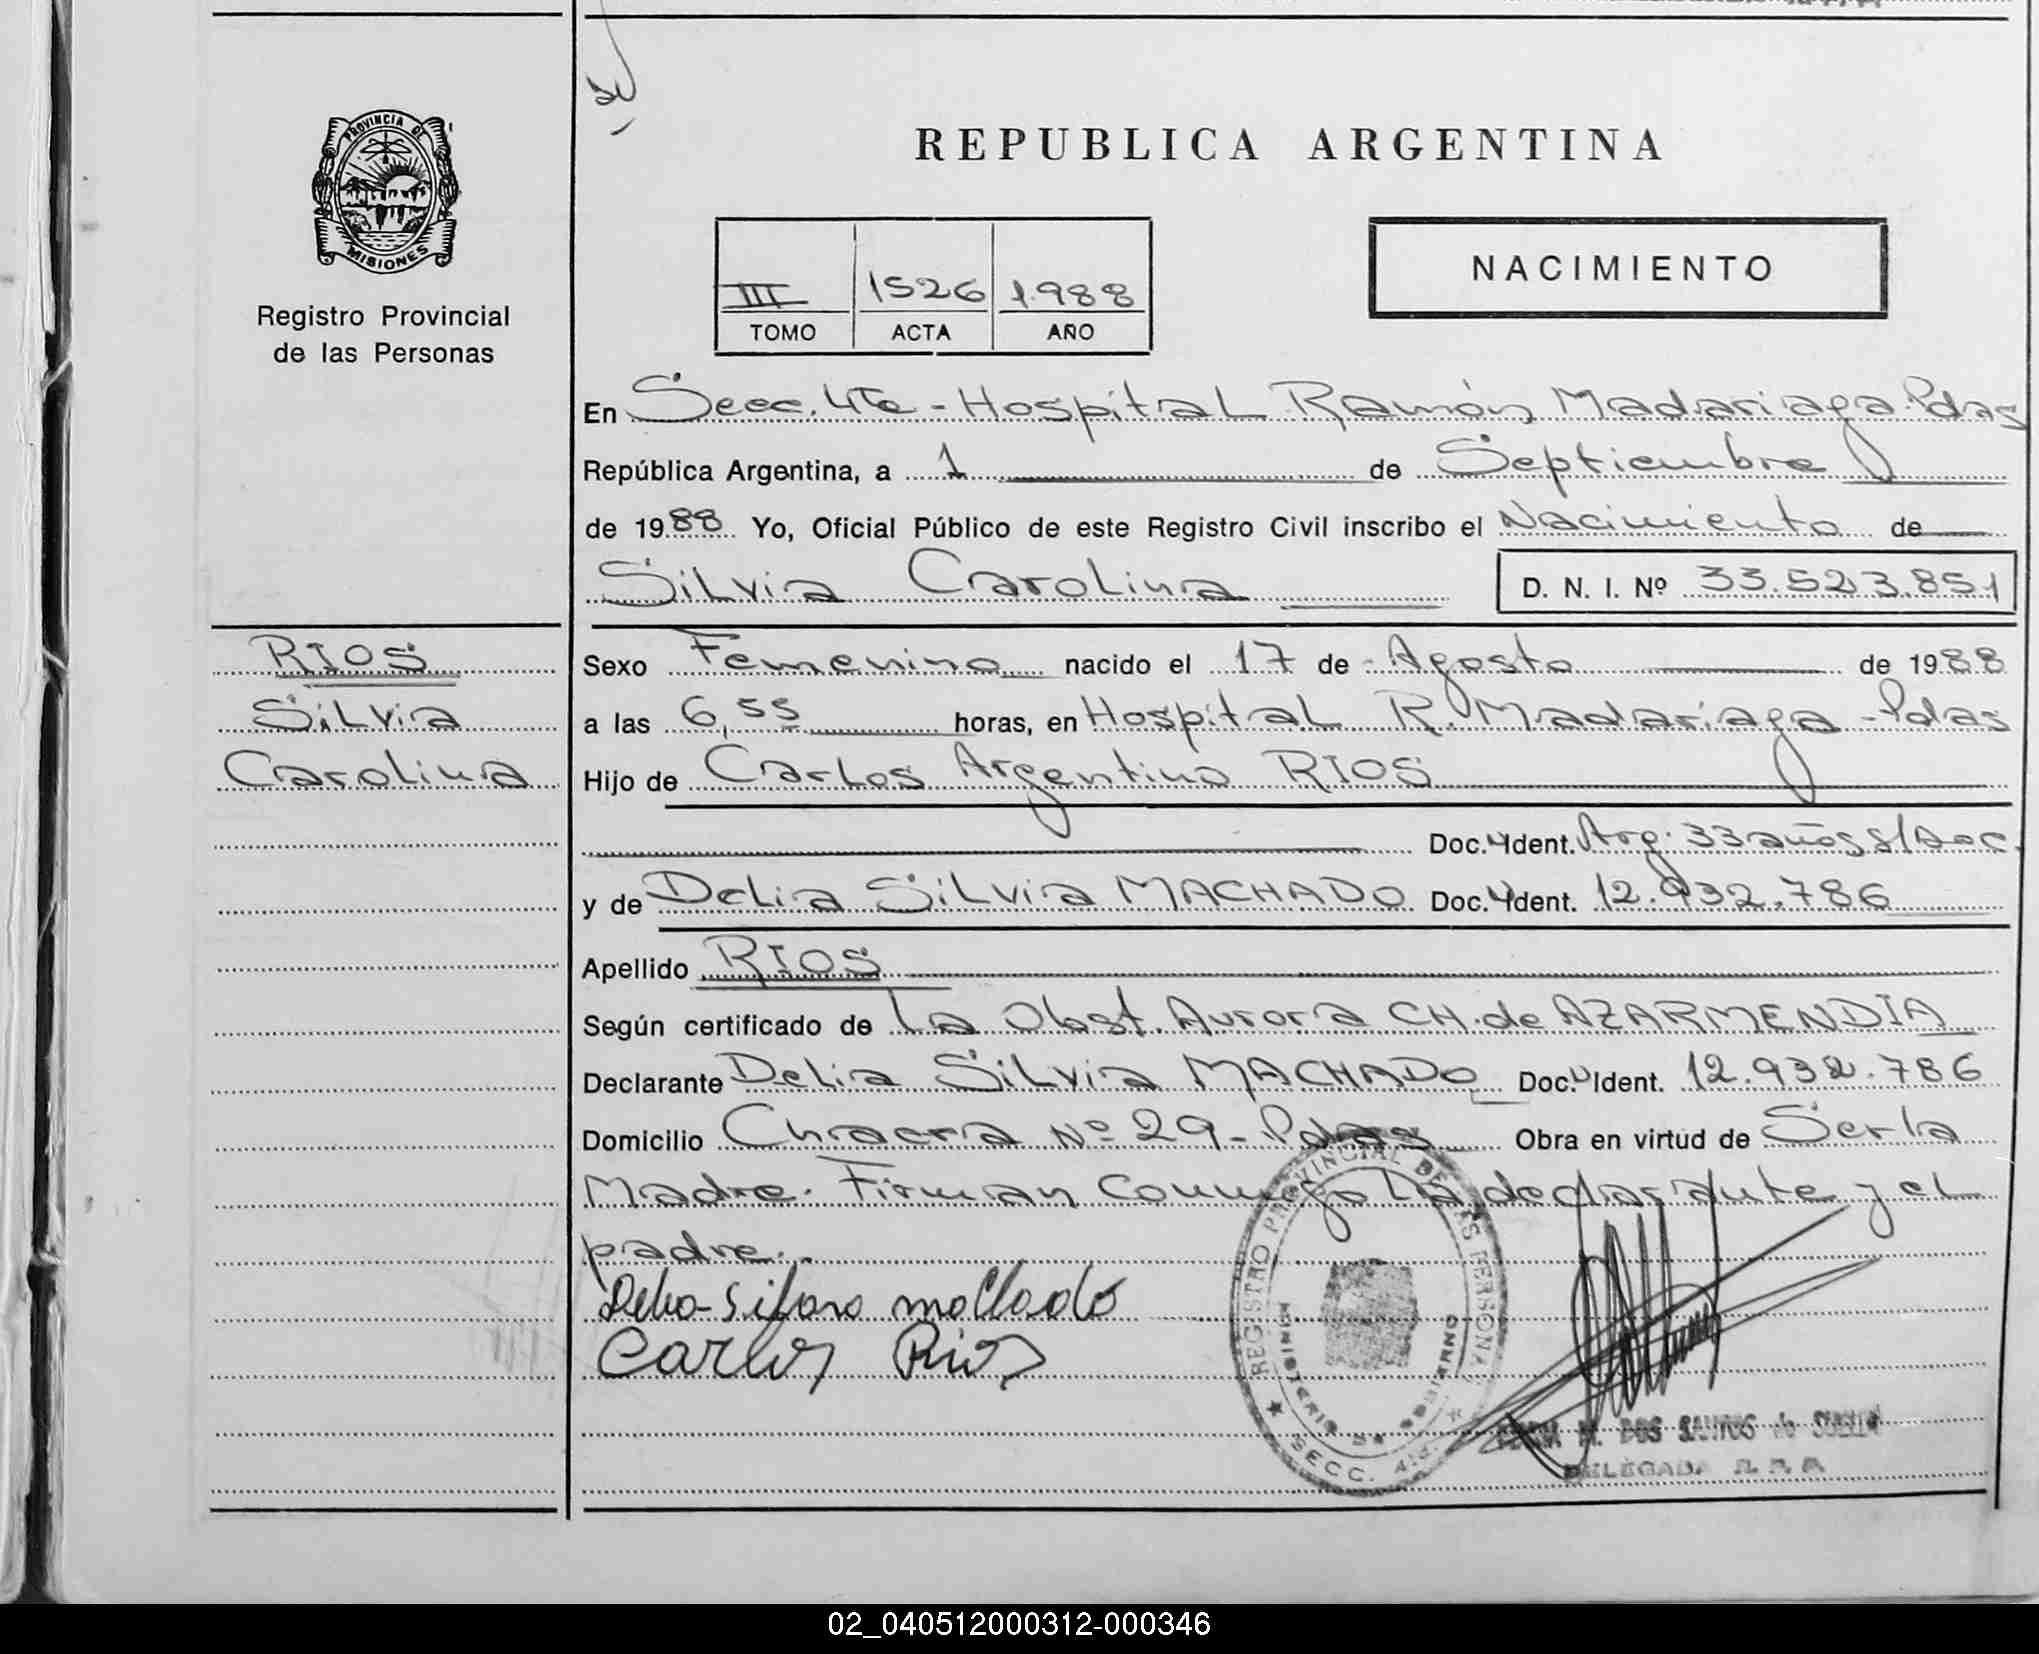 PROVINCIA DE
MISIONES
Registro Provincial
de las Personas
REPUBLICA ARGENTINA
III 1526 1.988
TOMO ACTA AÑO
NACIMIENTO
En Secc. 4ta - Hospital Ramón Madariaga. Pdas
República Argentina, a 1 de Septiembre
de 1988 Yo, Oficial Público de este Registro Civil inscribo el Nacimiento de
Silvia Carolina D. N. I. Nº 33.523.851
RIOS
Silvia
Carolina
Sexo Femenino nacido el 17 de Agosto de 1988
a las 6,55 horas, en Hospital R. Madariaga - Pdas
Hijo de Carlos Argentino RIOS
Doc. Ident. Arg. 33 años s/doc.
y de Delia Silvia MACHADO Doc. Ident. 12.932.786
Apellido RIOS
Según certificado de La Obst. Aurora CH. de AZARMENDIA
Declarante Delia Silvia MACHADO Doc. Ident. 12.932.786
Domicilio Chacra Nº 29 - Pdas Obra en virtud de Ser la
Madre. Firman Conmigo La declarante y el
padre.
Carlos Rios
REGISTRO PROVINCIAL DE LAS PERSONAS
MINISTERIO DE GOBIERNO
SECC. 4ta.
M. DOS SANTOS de
DELEGADA R. P. P.
02_040512000312-000346